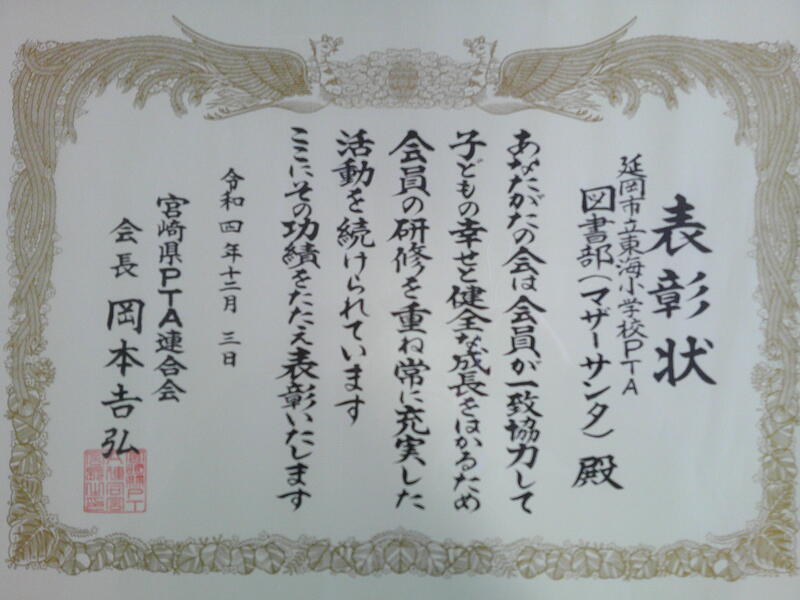 表彰状
延岡市立東海小学校PTA
図書部(マザーサンタ)殿
あなたがたの会は会員が一致協力して
子どもの幸せと健全な成長をはかるため
会員の研修を重ね常に充実した
活動を続けられています
ここにその功績をたたえ表彰いたします
令和四年十二月三日
宮崎県PTA連合会
会長 岡本吉弘